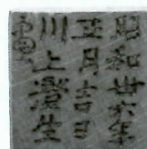 昭和廿六年
正月吉日
川上澄生